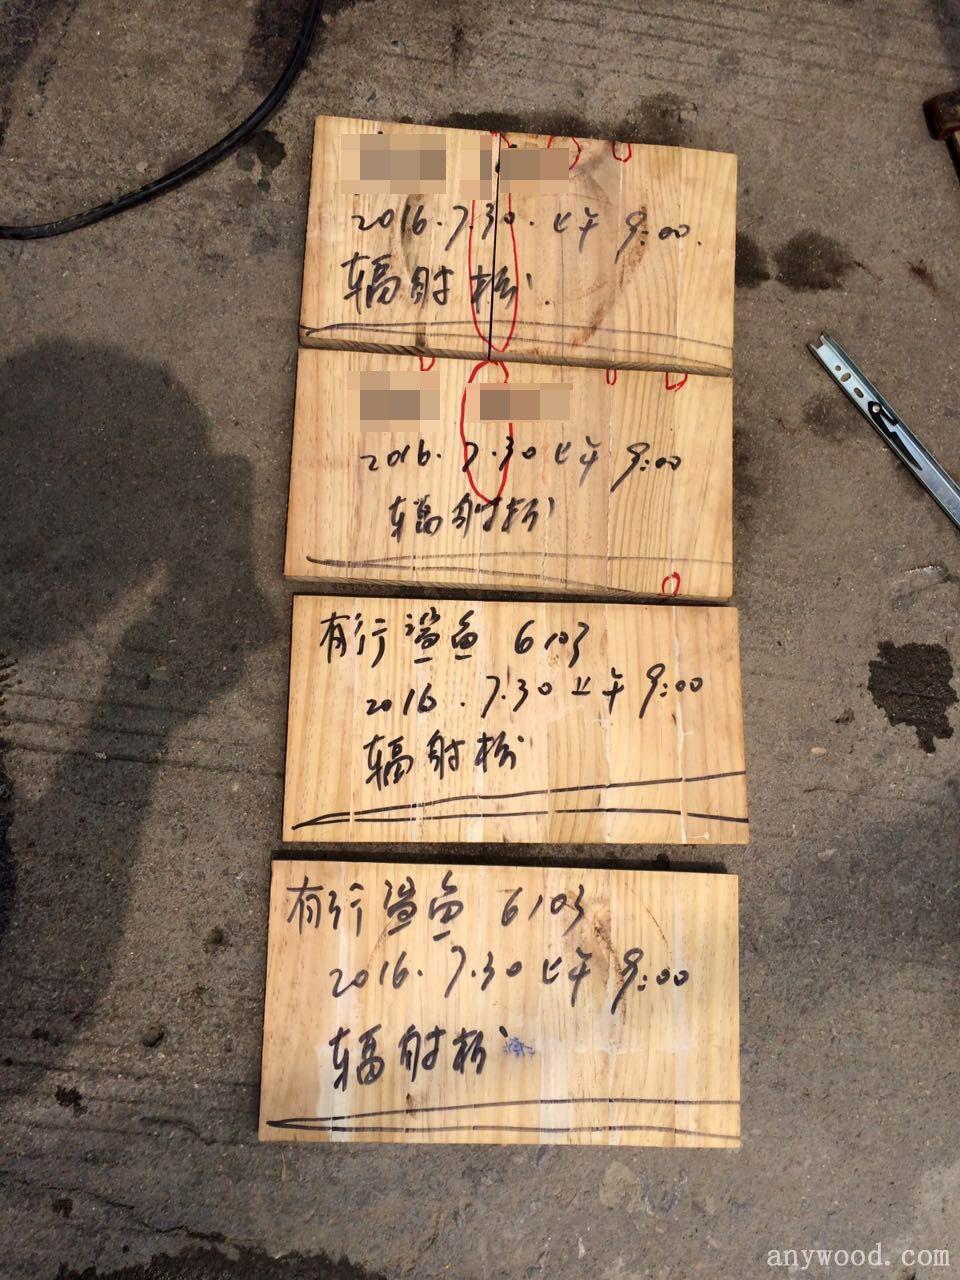 2016.7.30.上午9:00.
辐射松
2016.7.30上午9:00
辐射松
有行鲨鱼 6103
2016.7.30上午9:00
辐射松
有行鲨鱼 6103
2016.7.30上午9:00
辐射松
anywood.com